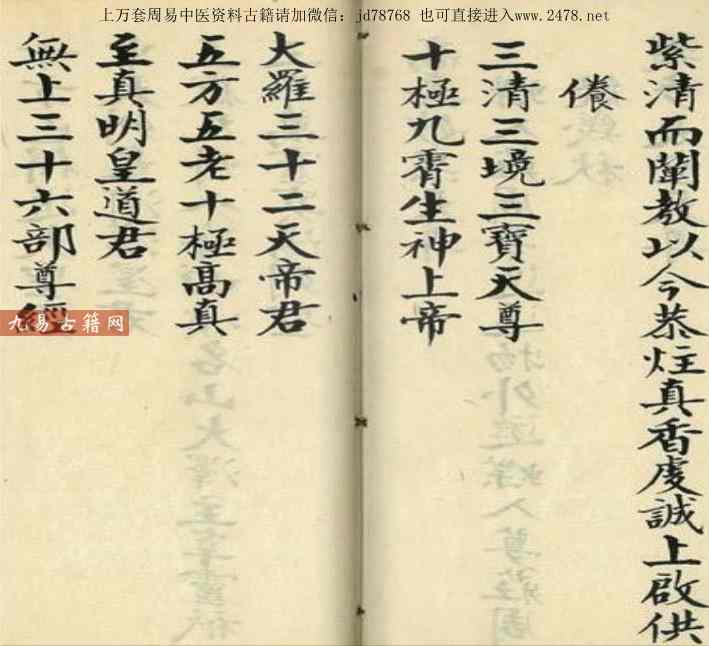 上万套周易中医资料古籍请加微信：jd78768 也可直接进入www.2478.net
紫清而闡教以今恭炷真香虔誠上啟供
養
三清三境三寶天尊
十極九霄生神上帝
大羅三十二天帝君
五方五老十極高真
至真明皇道君
無上三十六部尊經
九易古籍网